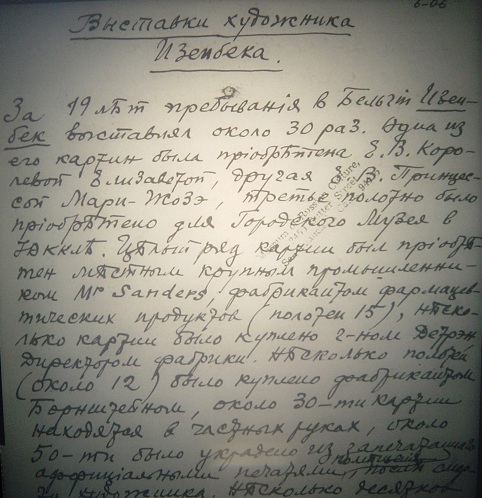 6-06
Выставки художника
Изенбека.
За 19 лѣт пребыванія в Бельгіи Изен-
бек выставлял около 30 раз. Одна из
его картин была пріобрѣтена Е.В. Коро-
левой Елизаветой, другая Е.В. Принцес-
сой Мари-Жозэ, третье полотно было
пріобрѣтено для Городского Музея в
Юкклѣ. Цѣлый ряд картин был пріобрѣ-
тен мѣстным крупным промышленни-
ком Mr Sanders, фабрикантом фармацев-
тических продуктов (полотен 15), нѣско-
лько картин было куплено г-ном Детрэн
Директором фабрики. Нѣсколько полотен
(около 12) было куплено фабрикантом
около 30-ти картин
находятся в частных руках, около
50-ти было украдено из запечатаннаго
оффиціальными печатями послѣ смер-
ти художника. Нѣсколько десятков
Museum of Russian Culture,